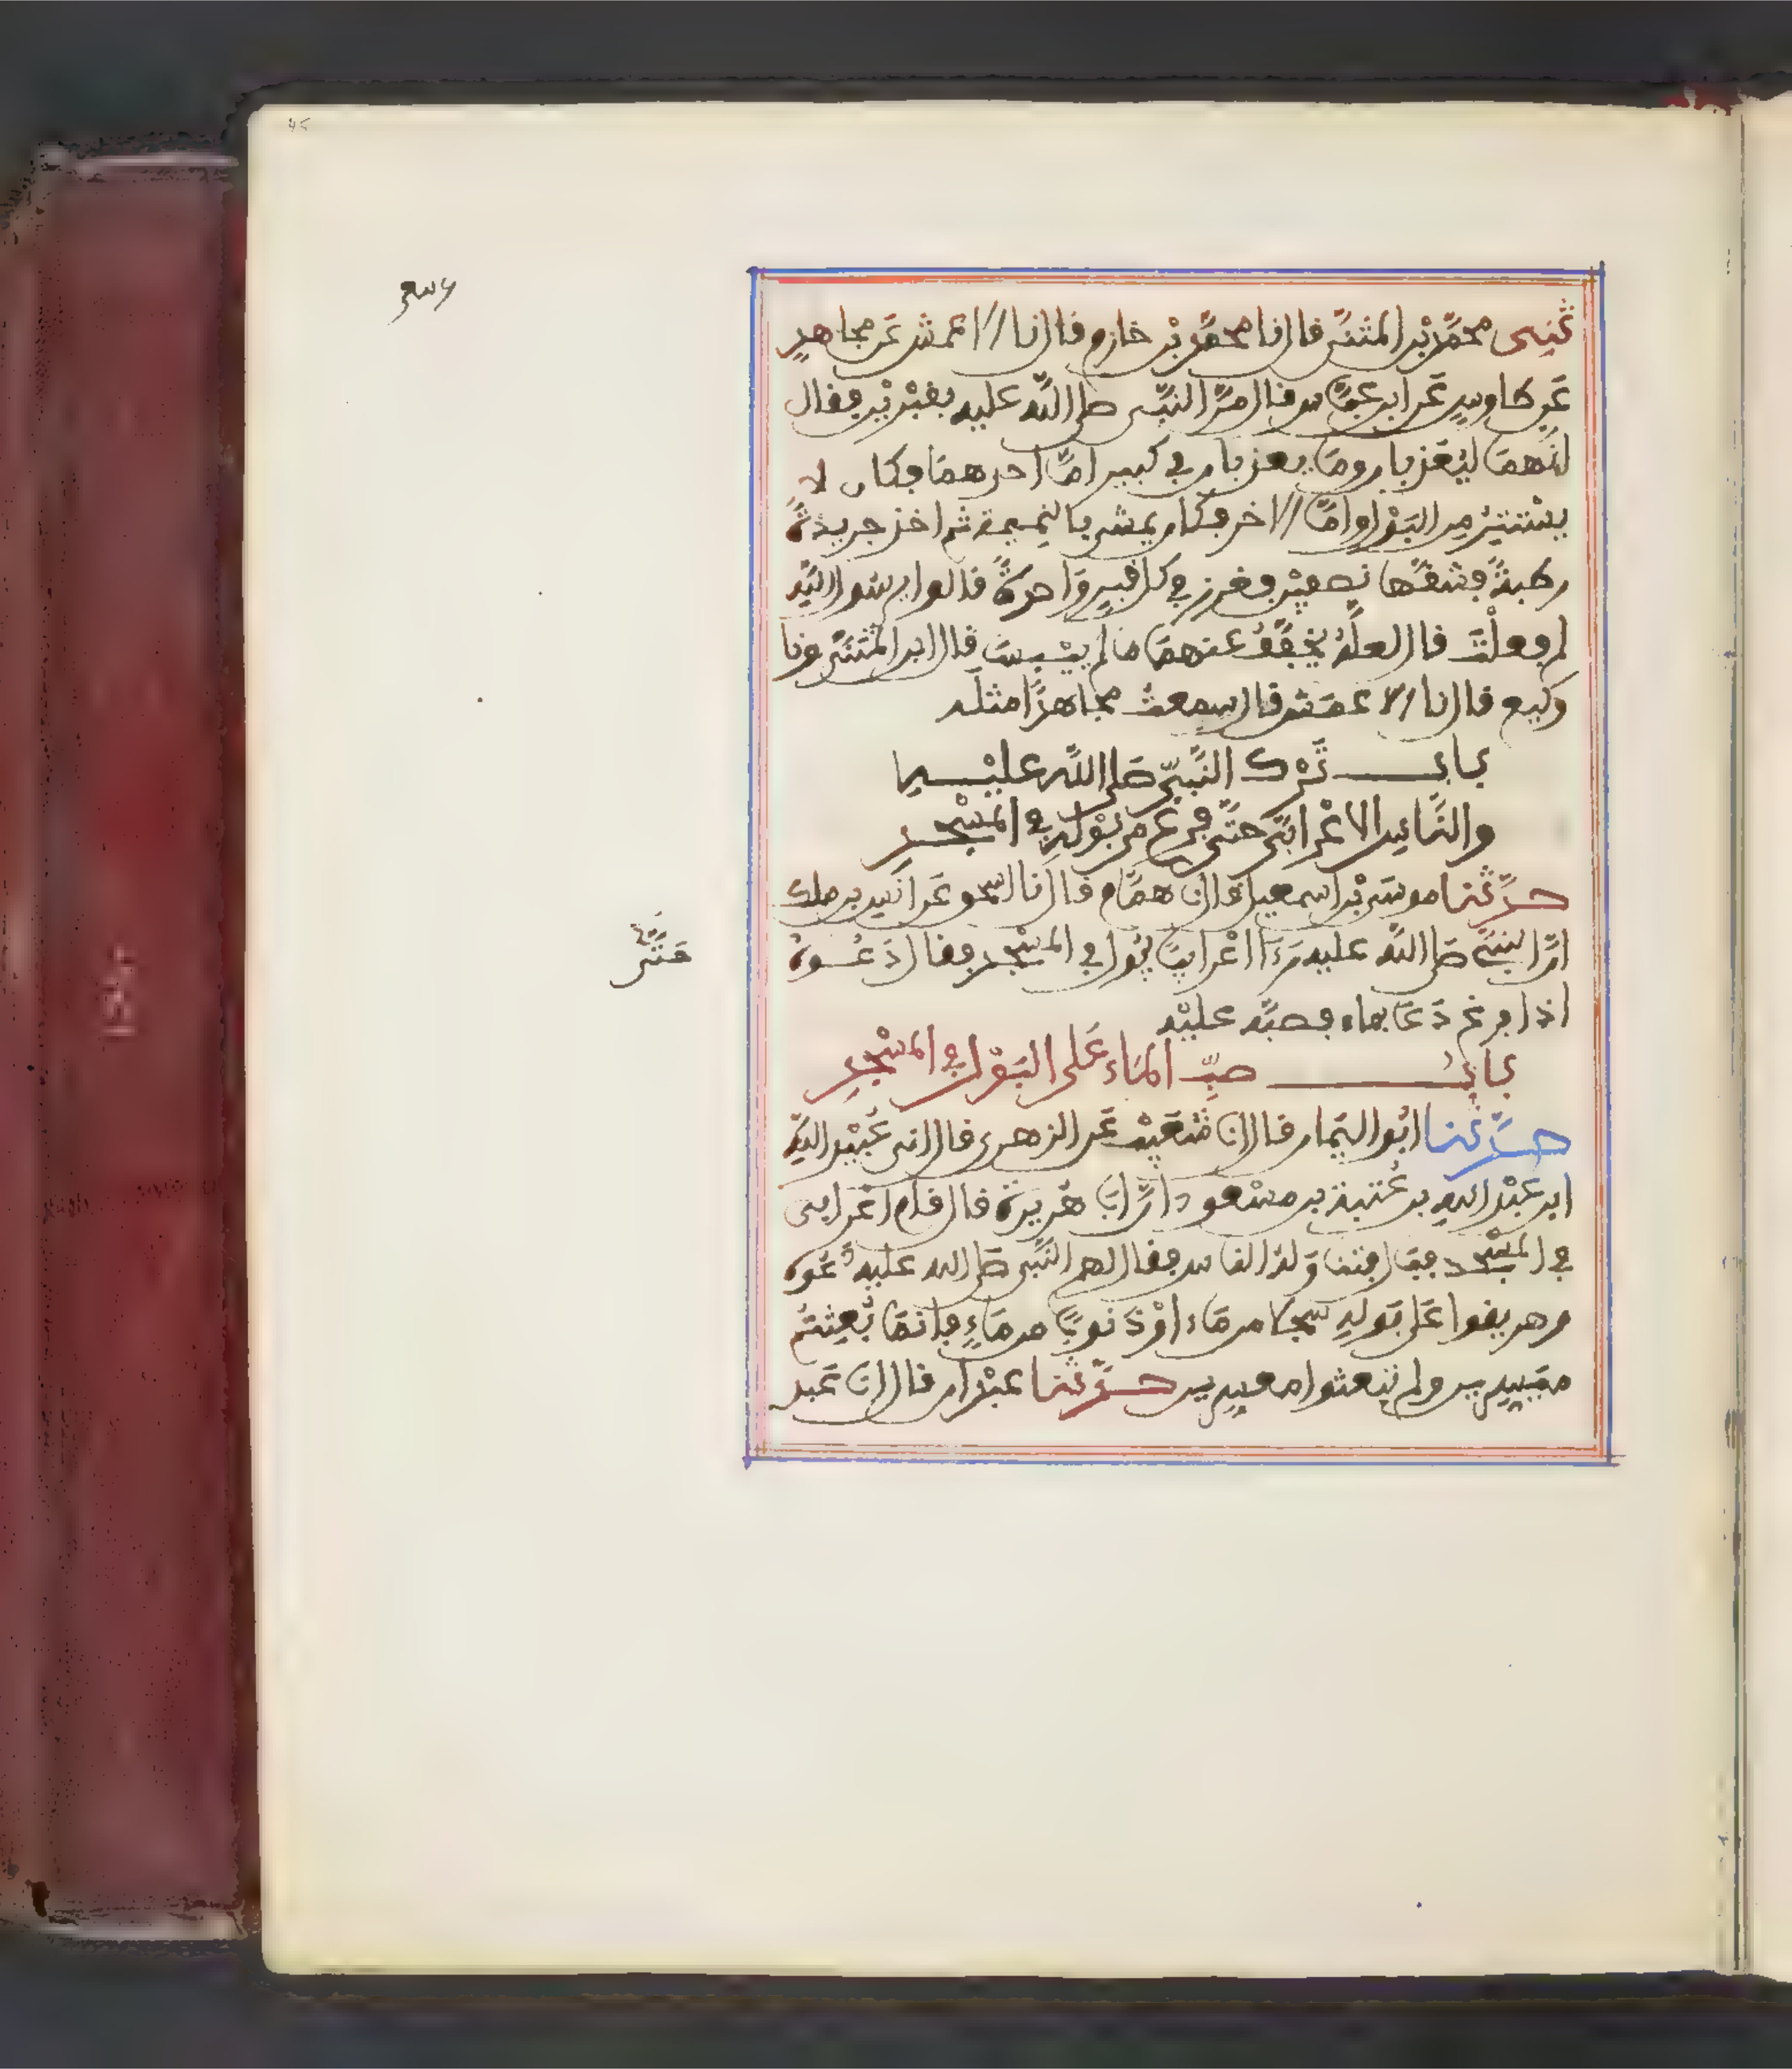 ثني محمد بن المثنى قال نا محمد بن خازم قال نا الاعمش عن مجاهد
عن طاوس عن ابن عباس قال مر النبي صلى الله عليه بقبرين فقال
انهما ليعذبان وما يعذبان في كبير اما احدهما فكان لا
يستتر من البول واما الاخر فكان يمشي بالنميمة ثم اخذ جريدة
رطبة فشقها نصفين فغرز في كل قبر واحدة قالوا يرسول الله
لم فعلت قال لعله يخفف عنهما ما لم ييبسا قال ابن المثنى ونا
وكيع قال نا الاعمش قال سمعت مجاهدا مثله
باب ترك النبي صلى الله عليه
والناس الاعرابي حتى فرغ من بوله في المسجد
حدثنا موسى بن اسمعيل قال نا همام قال نا اسحق عن انس بن ملك
ان النبي صلى الله عليه رءا اعرابيا يبول في المسجد فقال دعوه
حتى
اذا فرغ دعا بماء فصبه عليه
باب صب الماء على البول في المسجد
حدثنا ابو اليمان قال انا شعيب عن الزهري قال اني عبيد الله
ابن عبد الله بن عتبة بن مسعود ان ابا هريرة قال قام اعرابي
في المسجد فبال فتناوله الناس فقال لهم النبي صلى الله عليه دعوه
وهريقوا على بوله سجلا من ماء او ذنوبا من ماء فانما بعثتم
ميسرين ولم تبعثوا معسرين حدثنا عبدان قال انا عبد